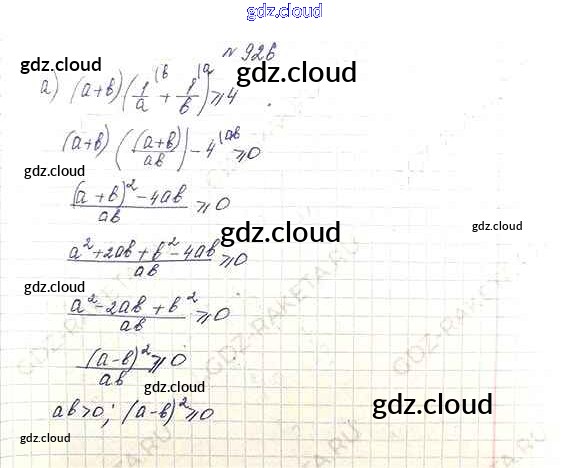 gdz.cloud
gdz.cloud
№ 926
gdz.cloud
gdz.cloud
а) (a+b)(1/a |b + 1/b |a) ≥ 4
gdz.cloud
(a+b)((a+b)/ab) - 4 |ab ≥ 0
gdz.cloud
(a+b)² - 4ab / ab ≥ 0
gdz.cloud
gdz.cloud
a² + 2ab + b² - 4ab / ab ≥ 0
gdz.cloud
a² - 2ab + b² / ab ≥ 0
gdz.cloud
(a-b)² / ab ≥ 0
gdz.cloud
gdz.cloud
ab > 0; (a-b)² ≥ 0
gdz.cloud
gdz.cloud
GDZ-RAKETA.RU